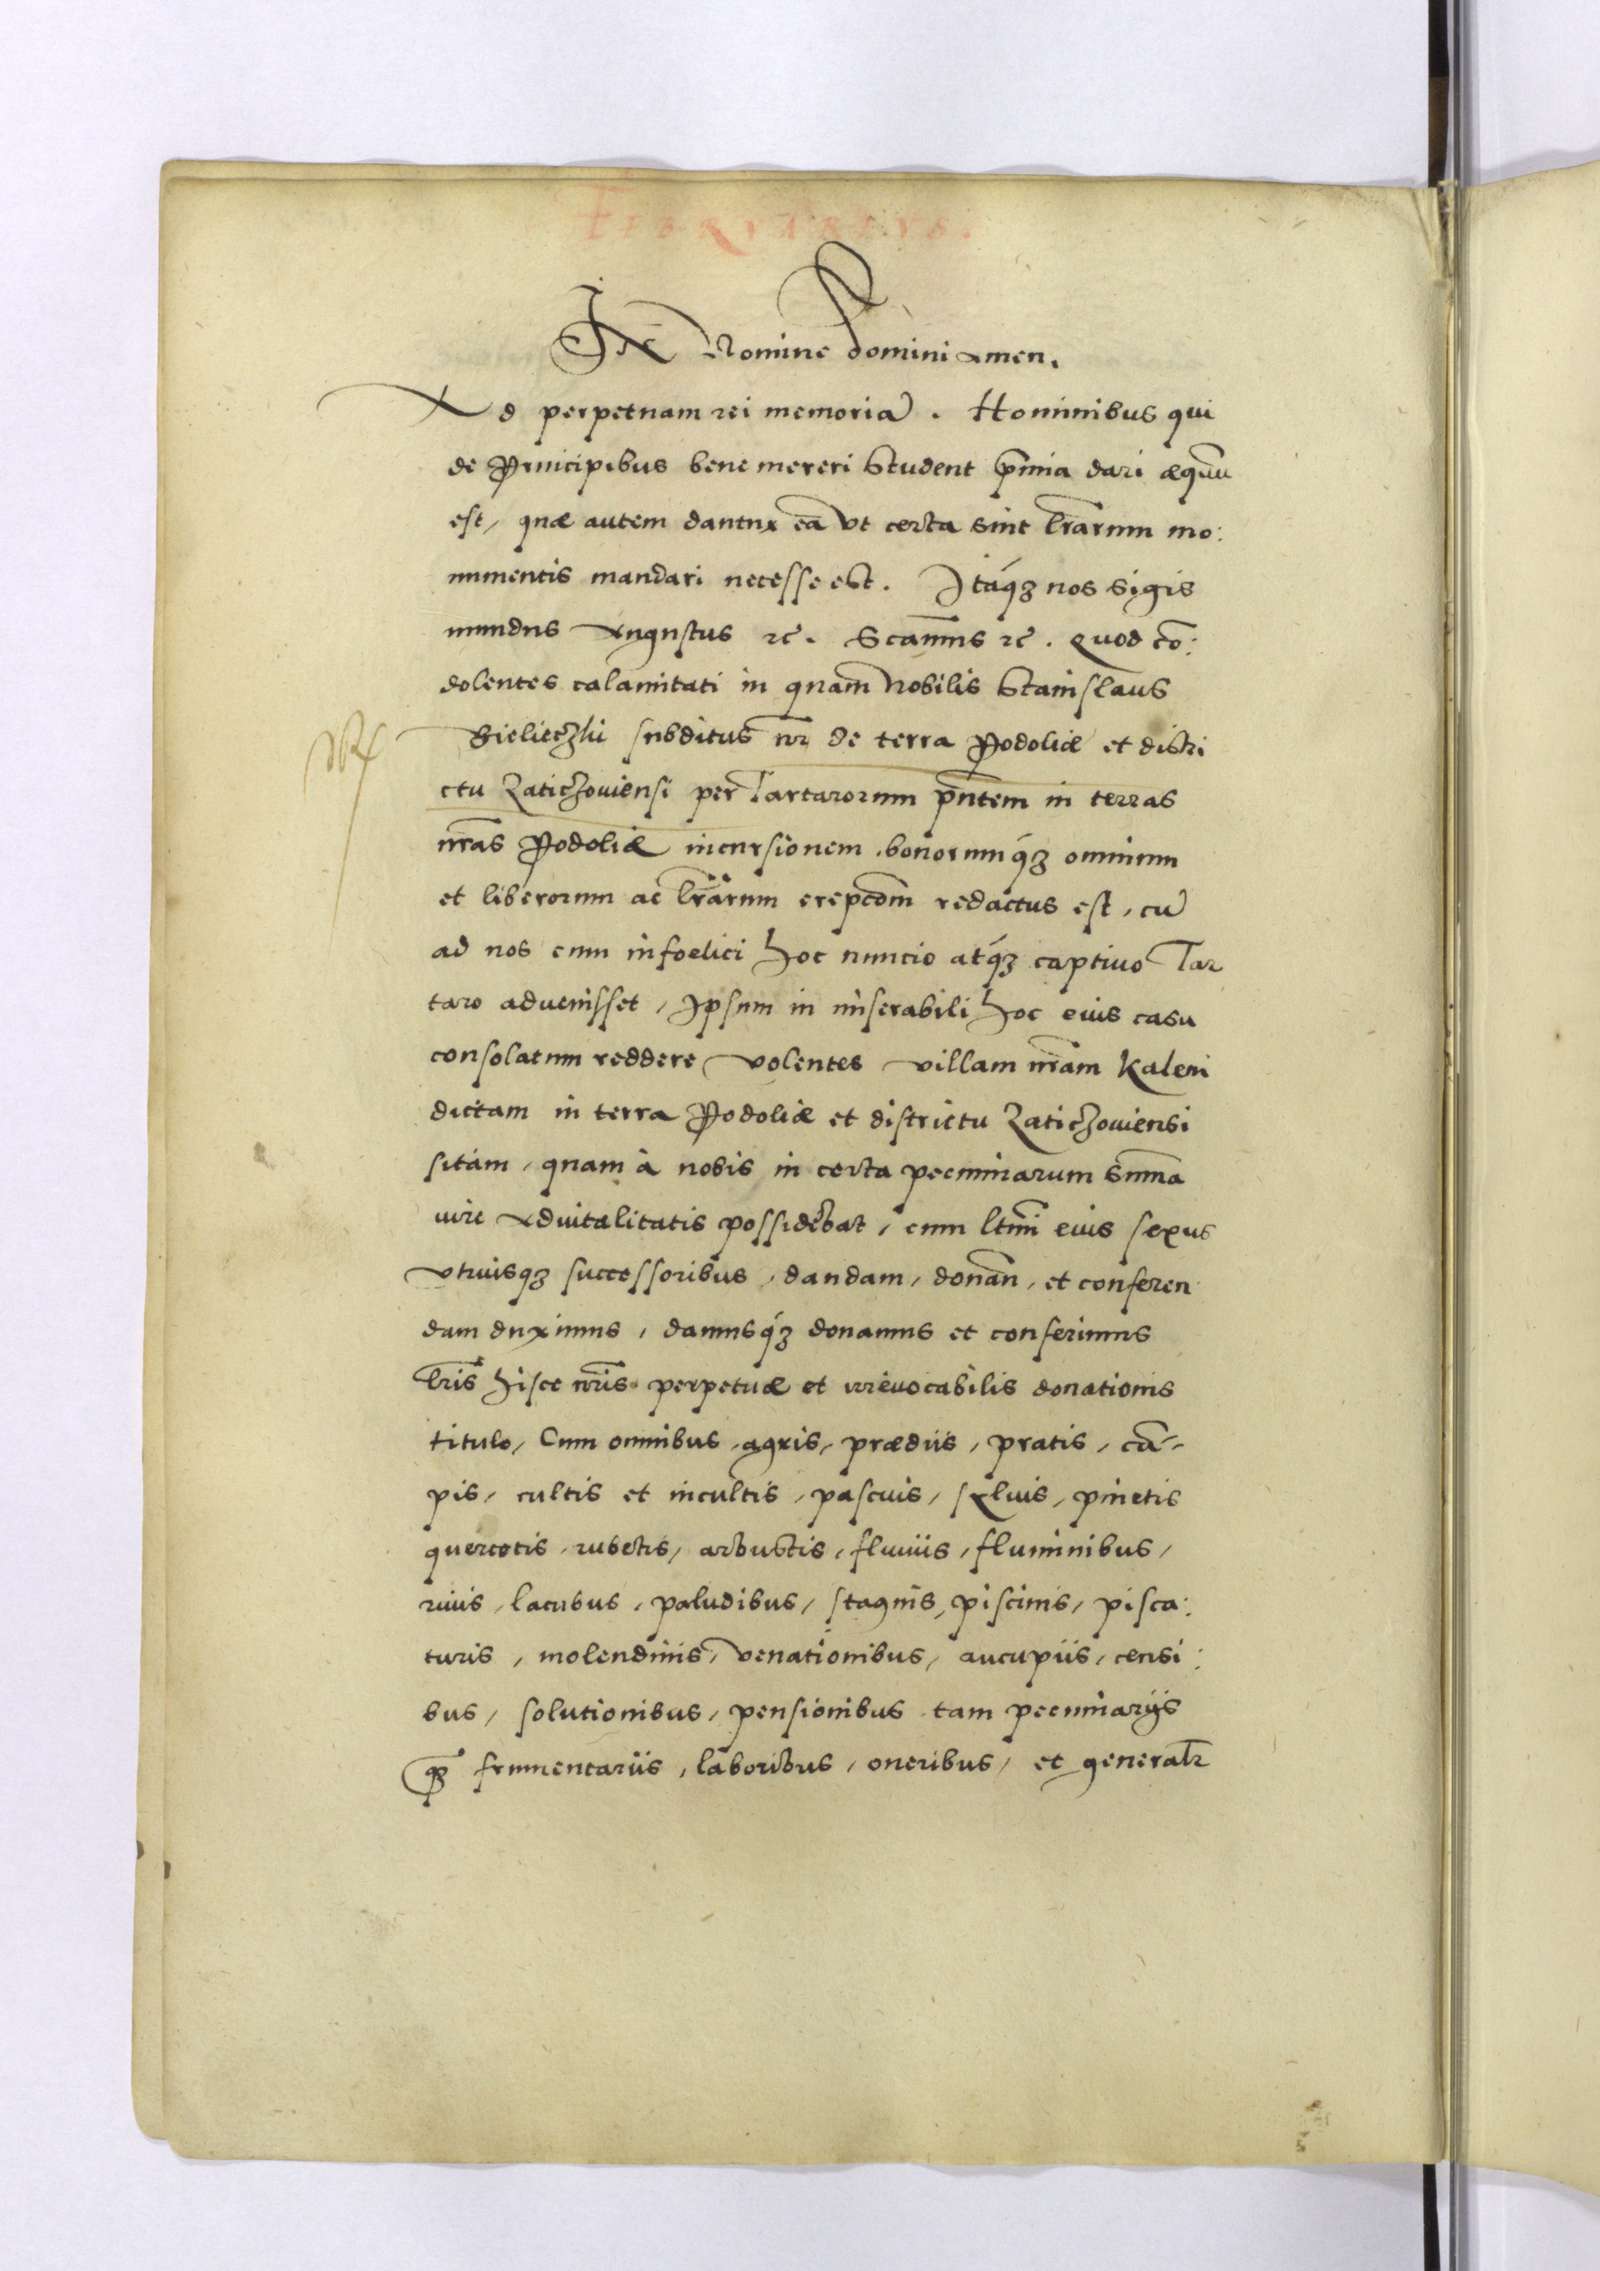 FEBRVARIVS.
In Nomine Domini Amen.
Ad perpetuam rei memoriā. Hominibus qui
de Principibus bene mereri student p̄mia dari æquū
est, quæ autem dantur eā ut certa sint lrārum mo:
numentis mandari necesse est. Itáqꝫ nos Sigis
mundus Augustus ꝛc̄. Scām̄us ꝛc̄. Quod cō:
dolentes calamitati in quam Nobilis Stanislaus
Bielieczki subditus nr̄ de terra Podoliæ et distri
ctu Laticzouiensi per Tartarorum pn̄tem in terras
nrās Podoliæ incursionem bonorumqꝫ́ omnium
et liberorum ac lrārum erepcōm redactus est, cū
ad nos cum infoelici hoc nuncio atqꝫ́ captiuo Tar
taro aduenisset, Ipsum in miserabili hoc eius casu
consolatum reddere volentes villam nrām Kaleni
dictam in terra Podoliæ et districtu Laticzouiensi
sitam, quam à nobis in certa pecuniarum sum̄a
iure Aduitalitatis possidebat, cum ltm̄i eius sexus
vtriusqꝫ successoribus, dandam, donān, et conferen
dam duximus, damusqꝫ́ donamus et conferimus
lrīs hisce nrīs perpetuæ et irreuocabilis donationis
titulo, Cum omnibus, agris, prædiis, pratis, cā-
pis, cultis et incultis, pascuis, syluis, pinetis
quercetis, rubetis, arbustis, fluuiis, fluminibus,
riuis, lacubus, paludibus, stagnis, piscinis, pisca:
turis, molendinis, venationibus, aucupiis, censi:
bus, solutionibus, pensionibus tam pecuniarijs
qꝫ̄ frumentariis, laboribus, oneribus, et generalr̄